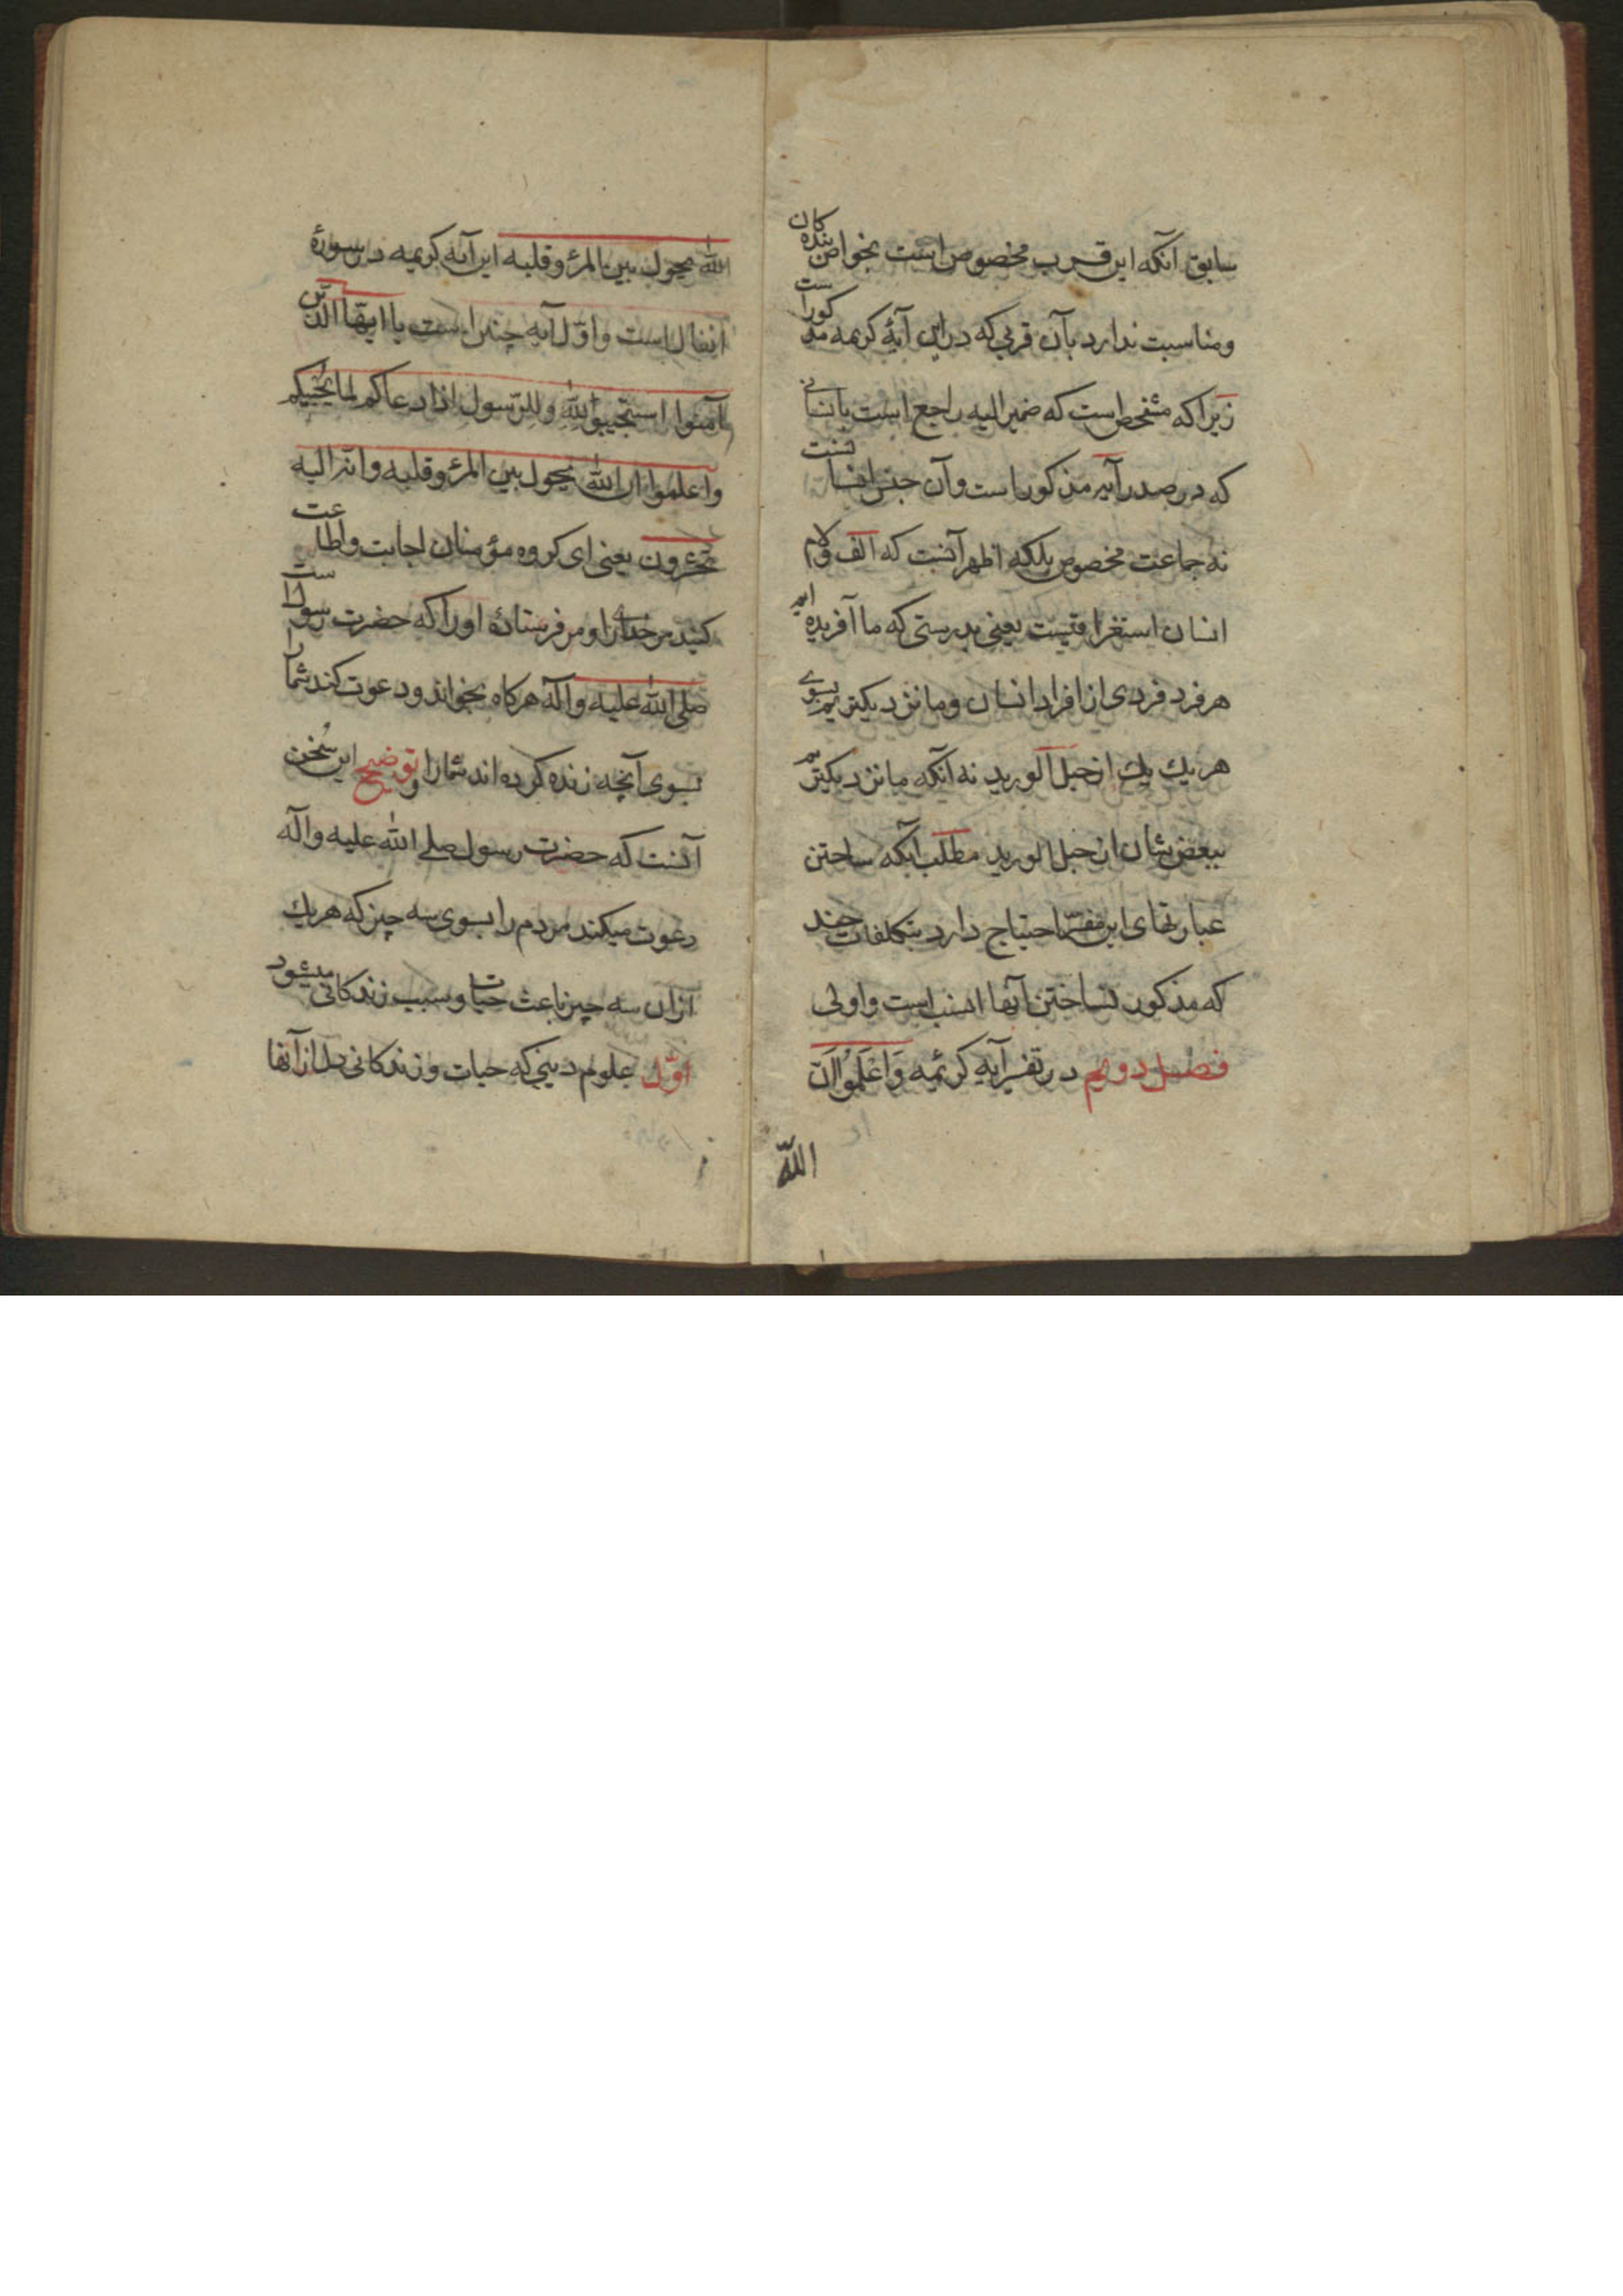 سابق آنکه این قرب مخصوص است بخواص بندەکان
ومناسبت ندارد بآن قربی که در این آیهٔ کریمه مذکور است
زیرا که مشخص است که ضمیر الیه راجع است بانسانی
که در صدر آیه مذکور است وآن جنس انسانست
نه جماعت مخصوص بلکه اظهر آنست که الف ولام
انسان استغراقیست یعنی بدرستی که ما آفریده ایم
هر فرد فردی از افراد انسان وما نزدیکتریم بسوی
هر یك یك از حبل الورید نه آنکه ما نزدیکتریم
ببعض شان از حبل الورید مطلب آنکه ساختن
عبارتهای این مفسر احتیاج دارد بتکلفات چند
که مذکور نساختن آنها انسب است واولی
فصل دویم در تفسیر آیه کریمه وَاعْلَمُوا اَنّ
اللّه
الله یحول بین المرء وقلبه این آیه کریمه در سورهٔ
انفال است واوّل آیه چنین است یا ایّها الّذین
آمنوا استجیبوا للّه وللرّسول اذا دعاکم لما یُحییکم
واعلموا ان اللّه یحول بین المرء وقلبه وانّه الیه
تحشرون یعنی ای کروه مؤمنان اجابت واطاعت
کنید مر خدایرا ومر فرستادهٔ اورا که حضرت رسول است
صلی اللّه علیه وآله هرکاه بخواند ودعوت کند شما را
بسوی آنچه زنده کرده اند شمارا وتوضیح این سُخن
آنست که حضرت رسول صلی اللّه علیه وآله
دعوت میکند مردم را بسوی سه چیز که هریك
ازان سه چیز باعث حیات وسبب زندکانی میشود
اوّل علوم دینی که حیات وزندکانی دل از آنها